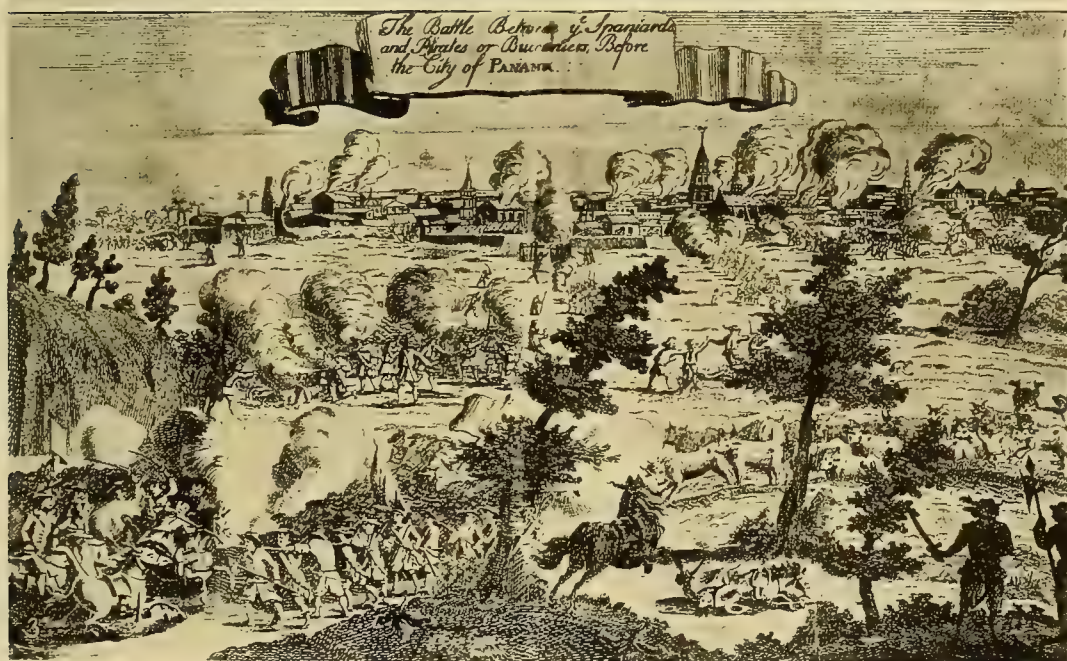 The Battle Between yᵉ Spaniards
and Pirates or Buccaniers, Before
the City of PANAMA.